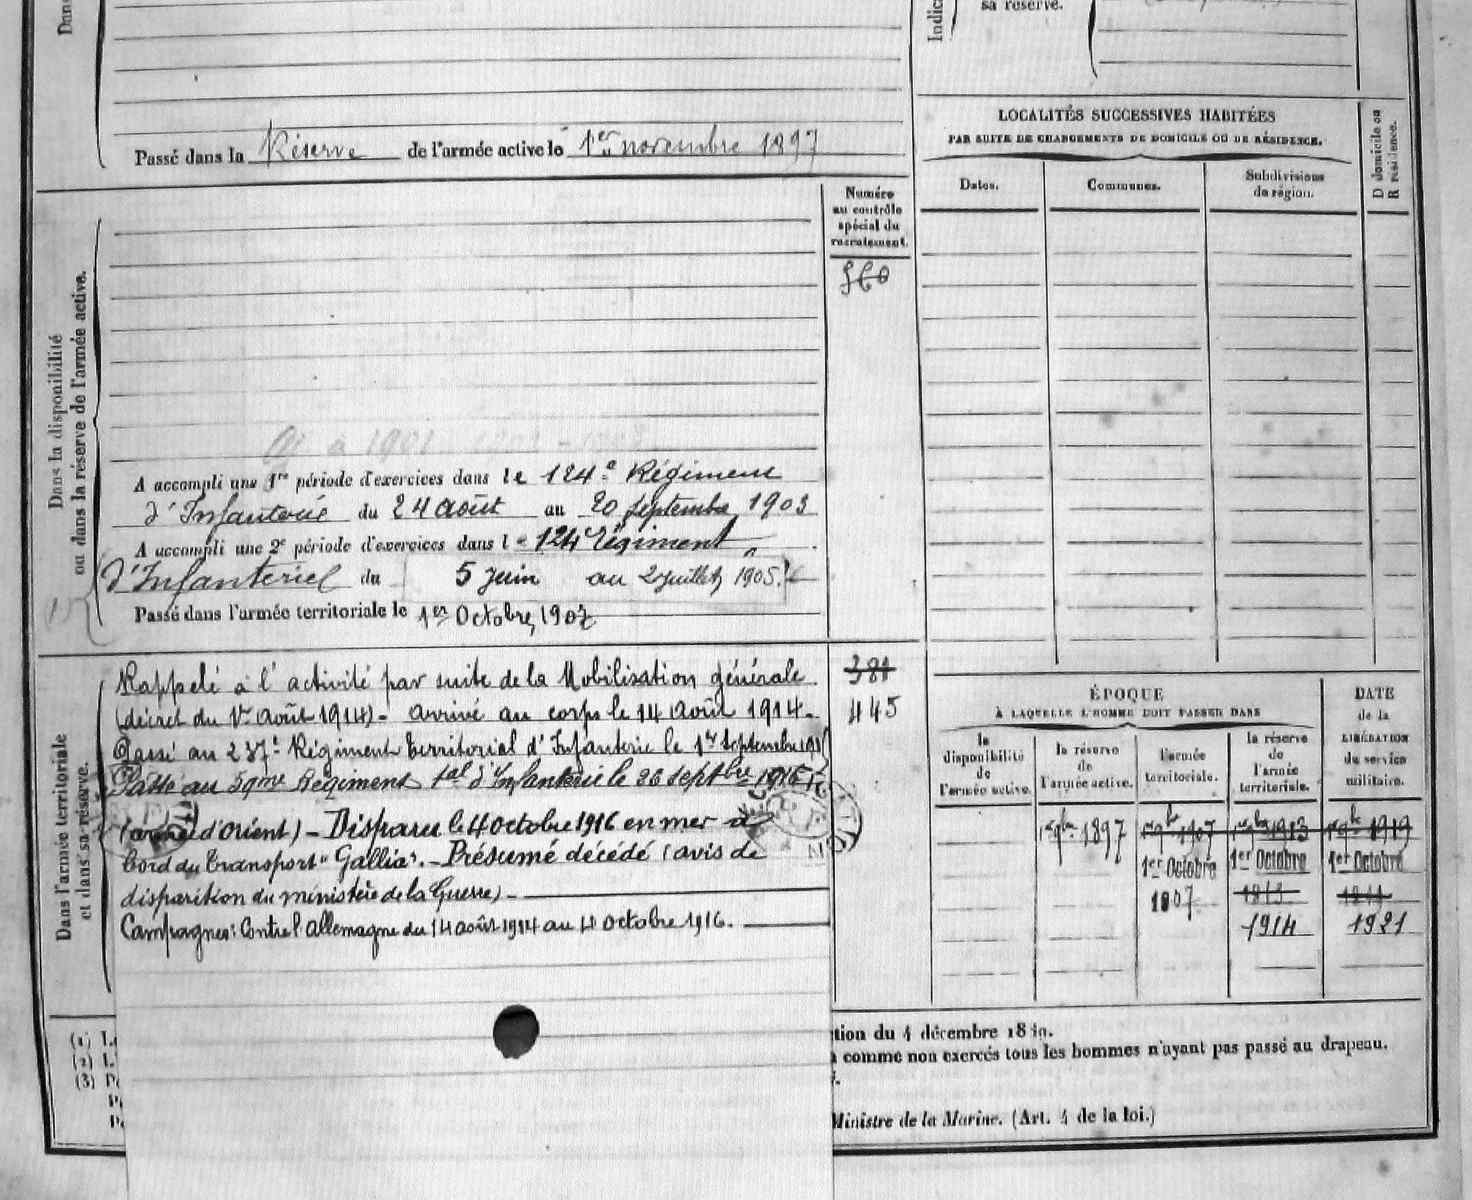 Dans
Passé dans la Réserve de l'armée active le 1er novembre 1897
Indic
sa réserve.
LOCALITÉS SUCCESSIVES HABITÉES
PAR SUITE DE CHANGEMENTS DE DOMICILE OU DE RÉSIDENCE.
D domicile ou
R résidence.
Dates.
Communes.
Subdivisions
de région.
Numéro
au contrôle
spécial du
recrutement.
560
Dans la disponibilité
ou dans la réserve de l'armée active.
à 1901
A accompli une 1re période d'exercices dans le 124e Régiment
d'Infanterie du 24 août au 20 septembre 1903
A accompli une 2e période d'exercices dans le 124 Régiment
d'Infanterie du 5 Juin au 2 juillet 1905.
Passé dans l'armée territoriale le 1er Octobre 1907
Dans l'armée territoriale
et dans sa réserve.
Rappelé à l'activité par suite de la Mobilisation générale
(décret du 1er août 1914). arrivé au corps le 14 août 1914.
Passé au 237e Régiment territorial d'Infanterie le 1er Septembre
Passé au 59me Régiment tal d'Infanterie le 26 septbre 1916
(armée d'orient) - Disparu le 4 octobre 1916 en mer à
bord du transport "Gallia". - Présumé décédé (avis de
disparition du ministère de la Guerre) -
Campagnes: Contre l'allemagne du 14 août 1914 au 4 octobre 1916.
381
445
ÉPOQUE
À LAQUELLE L'HOMME DOIT PASSER DANS
DATE
de la
LIBÉRATION
du service
militaire.
la
disponibilité
de
l'armée active.
la réserve
de
l'armée active.
l'armée
territoriale.
la réserve
de
l'armée
territoriale.
1er 9bre 1897
1er 9bre 1907
1er 9bre 1913
1er 9bre 1919
1er Octobre
1er Octobre
1er Octobre
1907
1913
1914
1921
(1)
(2)
(3)
tion du 4 décembre 18
comme non exercés tous les hommes n'ayant pas passé au drapeau.
Ministre de la Marine. (Art. 4 de la loi.)